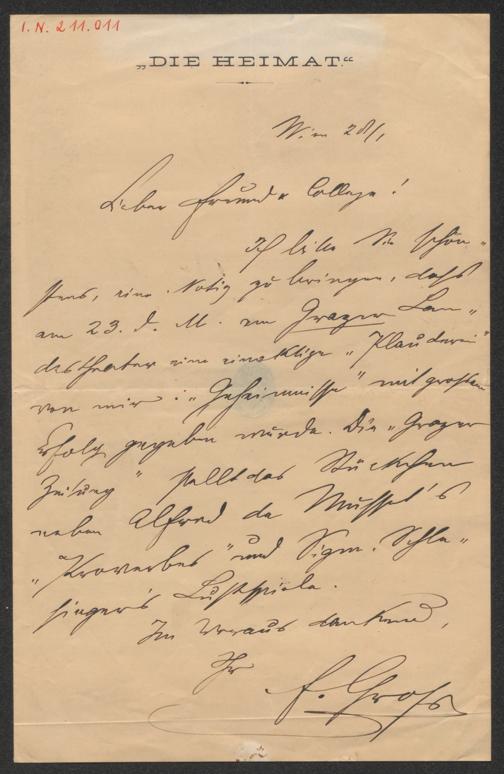 I. N. 211.011
„DIE HEIMAT.“
Wien 28/1
Lieber Freund u College!
Ich bitte Sie schön-
stens, eine Notiz zu bringen, daß
am 23. d. M. am Grazer Lan-
destheater eine einaktige „Plauderei“
von mir: „Geheimnisse“ mit großem
Erfolg gegeben wurde. Die „Grazer
Zeitung“ stellt das Stückchen
neben Alfred de Musset's
„Proverbes“ und Sigm. Schle-
singer's Lustspiele.
Im Voraus dankend,
Ihr
F. Groß